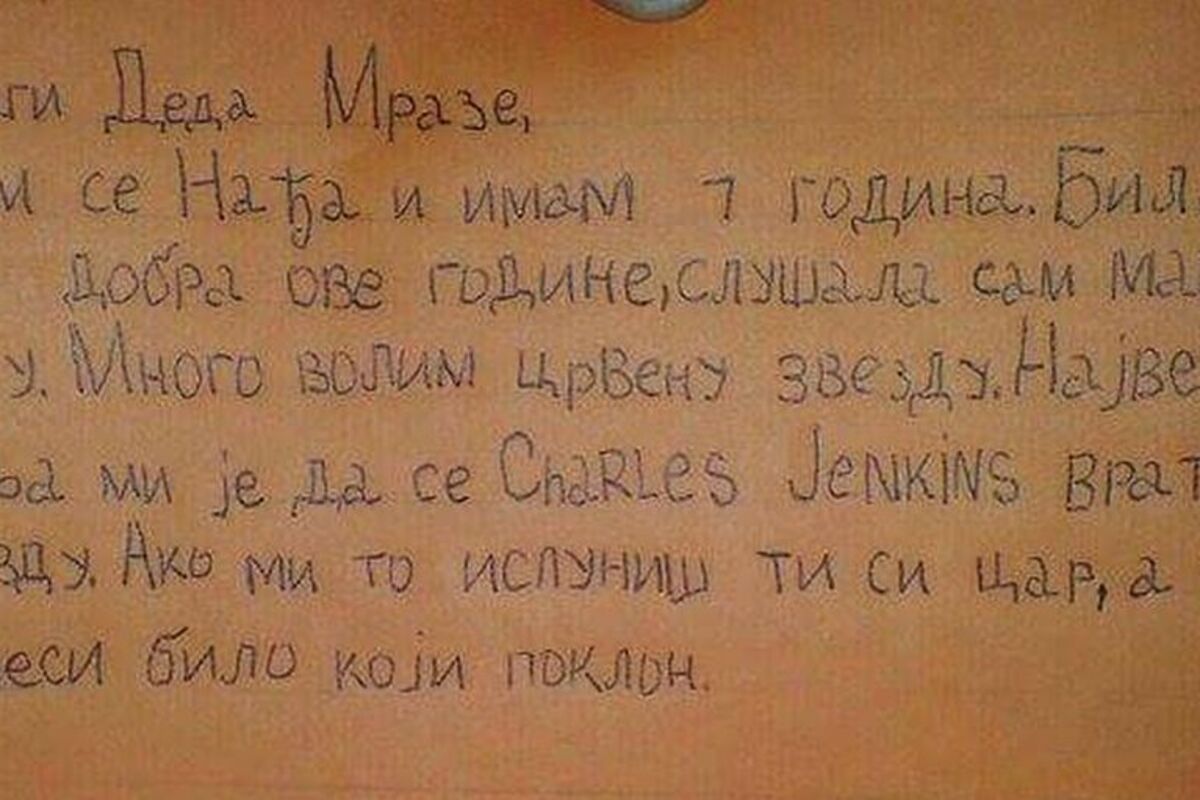 ги Деда Мразе,
м се Нађа и имам 7 година. Бил
добра ове године, слушала сам ма
у. Много волим црвену звезду. Најве
ми је да се ChaRLes JeNKiNS врат
зду. Ако ми то испуниш ти си цар, а
еси било који поклон.